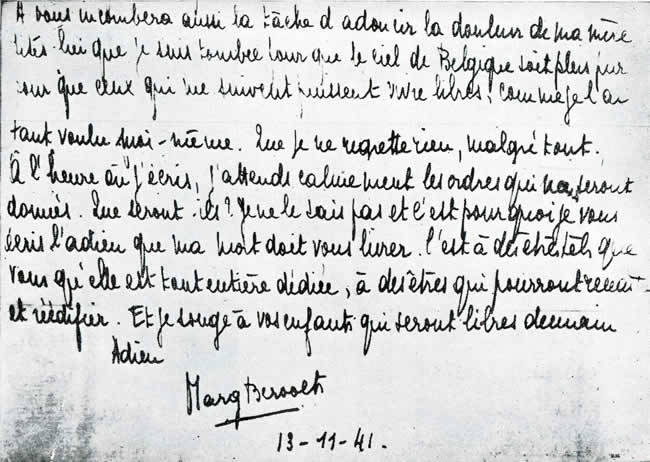 A vous incombera aussi la tâche d adoucir la douleur de ma mère
Dites-lui que je suis tombée pour que le ciel de Belgique soit plus pur
pour que ceux qui me suivent puissent vivre libres, comme je l'ai
tant voulu moi-même. Que je ne regrette rien, malgré tout.
À l'heure où j'écris, j'attends calmement les ordres qui seront
donnés. Que seront-ils? Je ne le sais pas et c'est pourquoi je vous
écris l'adieu que ma mort doit vous livrer. C'est à des êtres tels que
vous qu'elle est tout entière dédiée, à des êtres qui pourront
et réédifier. Et je songe à vos enfants qui seront libres demain
Adieu
13-11-41.